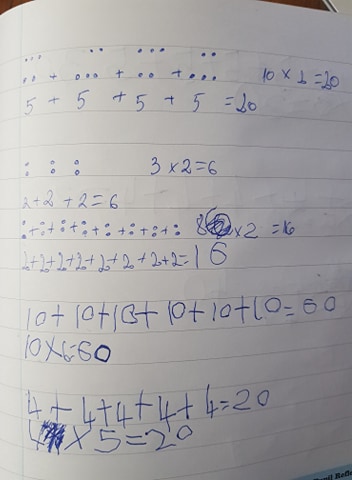 + + +
10 x 2 = 20
5 + 5 + 5 + 5 = 20
3 x 2 = 6
2 + 2 + 2 = 6
+ + + + + + + 8 x 2 = 16
2+2+2+2+2+2+2+2=16
10+10+10+10+10+10=60
10x6=60
4+4+4+4+4=20
4 x 5 = 20